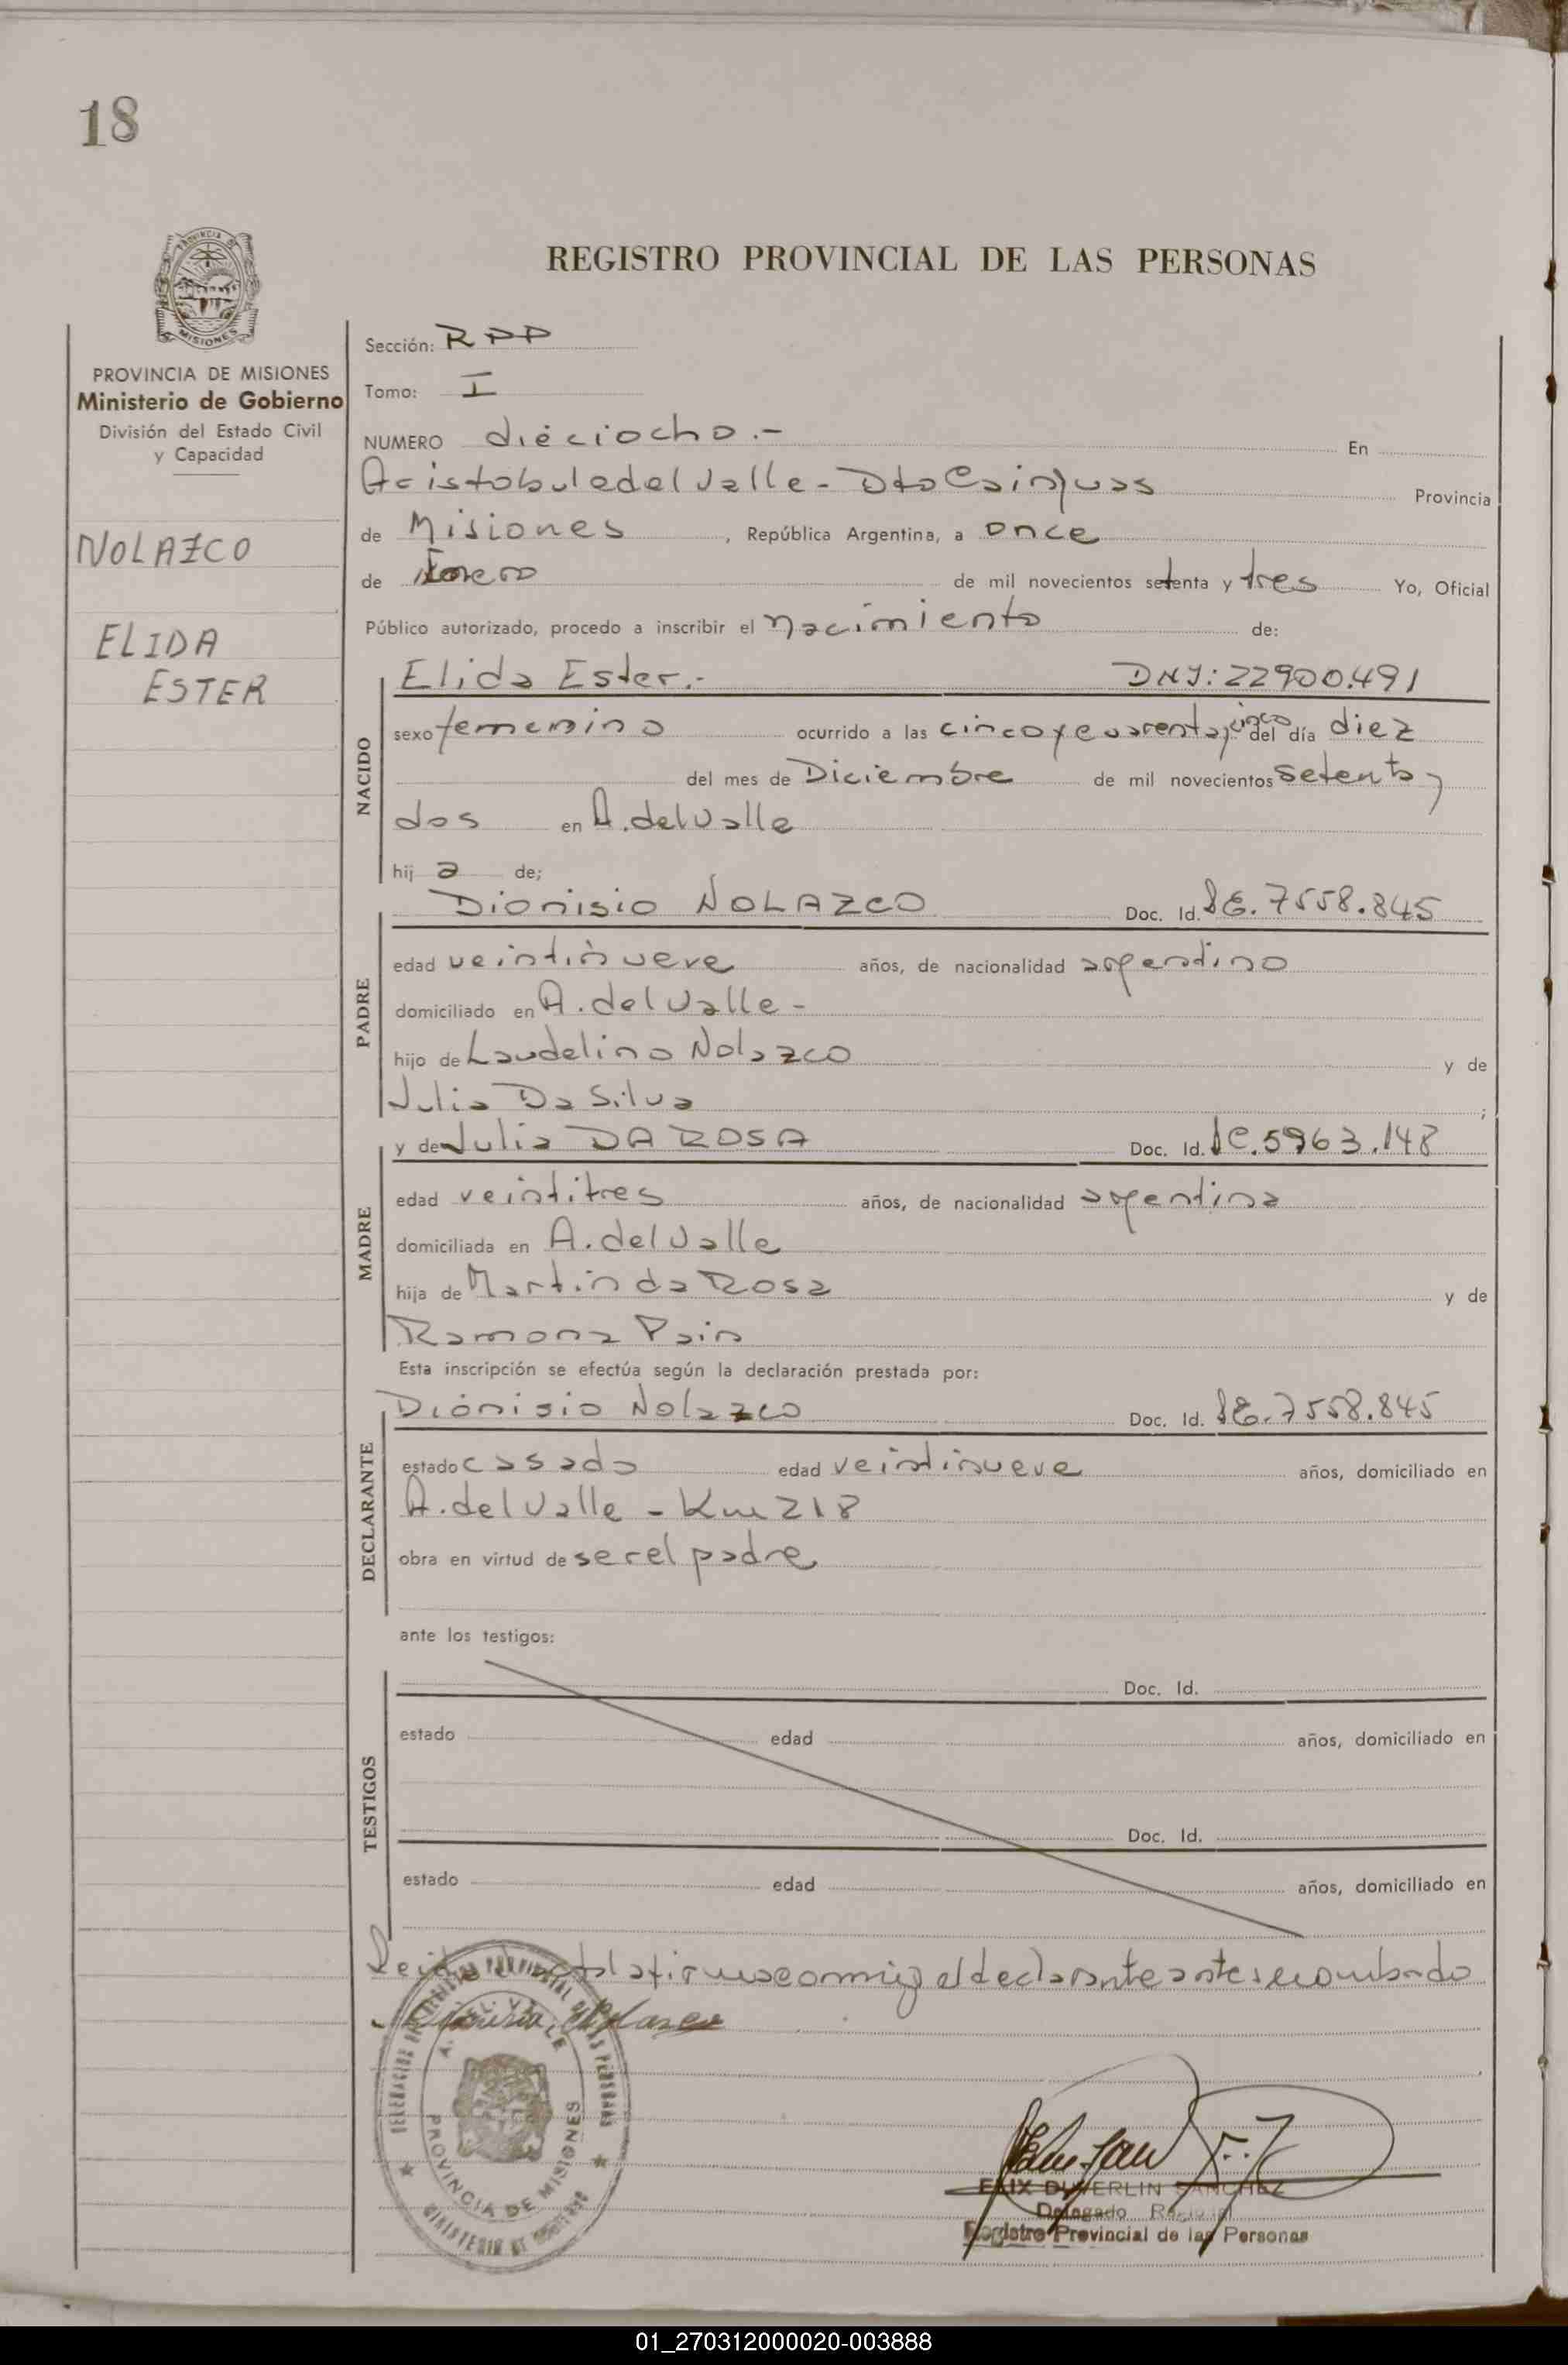 18
REGISTRO PROVINCIAL DE LAS PERSONAS
PROVINCIA DE MISIONES
Ministerio de Gobierno
División del Estado Civil
y Capacidad
NOLAZCO
ELIDA
ESTER
Sección: RPP
Tomo: I
NUMERO dieciocho.- En
Aristobuledel Valle - Dto Cainguas Provincia
de Misiones, República Argentina, a once
de Enero de mil novecientos setenta y tres Yo, Oficial
Público autorizado, procedo a inscribir el nacimiento de:
Elida Ester.- DNJ: 22900.491
NACIDO
sexo femenino ocurrido a las cinco y cuarenta y cinco del día diez
del mes de Diciembre de mil novecientos setenta y
dos en A. del Valle
hij a de;
Dionisio NOLAZCO Doc. Id. LE. 7558.845
PADRE
edad veintinueve años, de nacionalidad argentino
domiciliado en A. del Valle -
hijo de Laudelino Nolazco y de
Julia Da Silva ;
y de Julia DA ROSA Doc. Id. LC. 5963.148
MADRE
edad veintitres años, de nacionalidad argentina
domiciliada en A. del Valle
hija de Martin da Rosa y de
Ramona Pain
Esta inscripción se efectúa según la declaración prestada por:
Dionisio Nolazco Doc. Id. LE. 7558.845
DECLARANTE
estado casado edad veintinueve años, domiciliado en
A. del Valle - Km 218
obra en virtud de ser el padre
ante los testigos:
TESTIGOS
Doc. Id.
estado edad años, domiciliado en
Doc. Id.
estado edad años, domiciliado en
Leida el acta la firma conmigo el declarante antes nombrado
PROVINCIA DE MISIONES
FELIX DUVERLIN SANCHEZ
Delegado Regional
Registro Provincial de las Personas
01_270312000020-003888